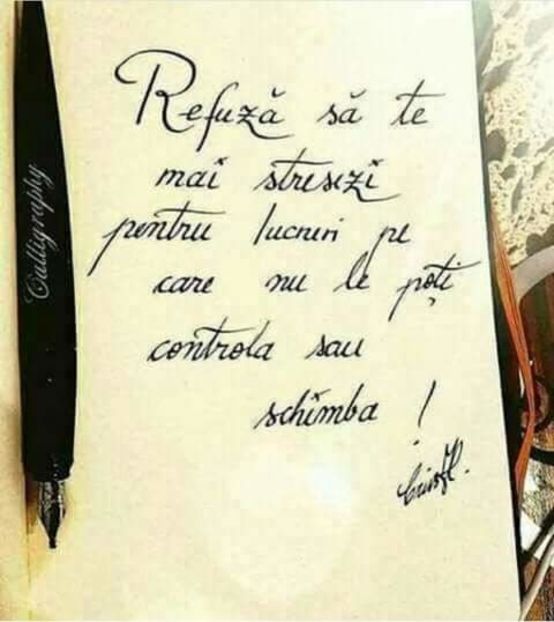 Calligraphy
Refuză să te
mai stresezi
pentru lucruri pe
care nu le poți
controla sau
schimba !